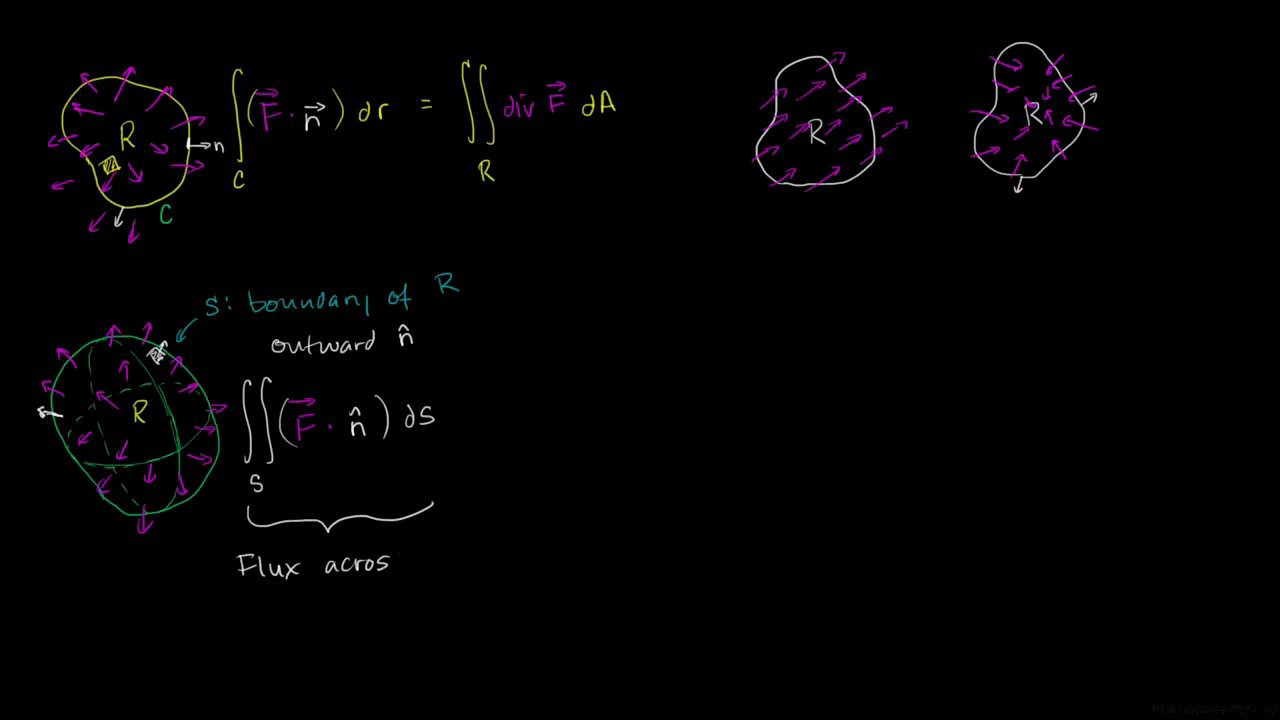 R
n
C
∫ ( F⃗ · n⃗ ) dr = ∬ div F⃗ dA
C R
R
R
S: boundary of R
outward n̂
R
∬ ( F⃗ · n̂ ) dS
S
Flux acros